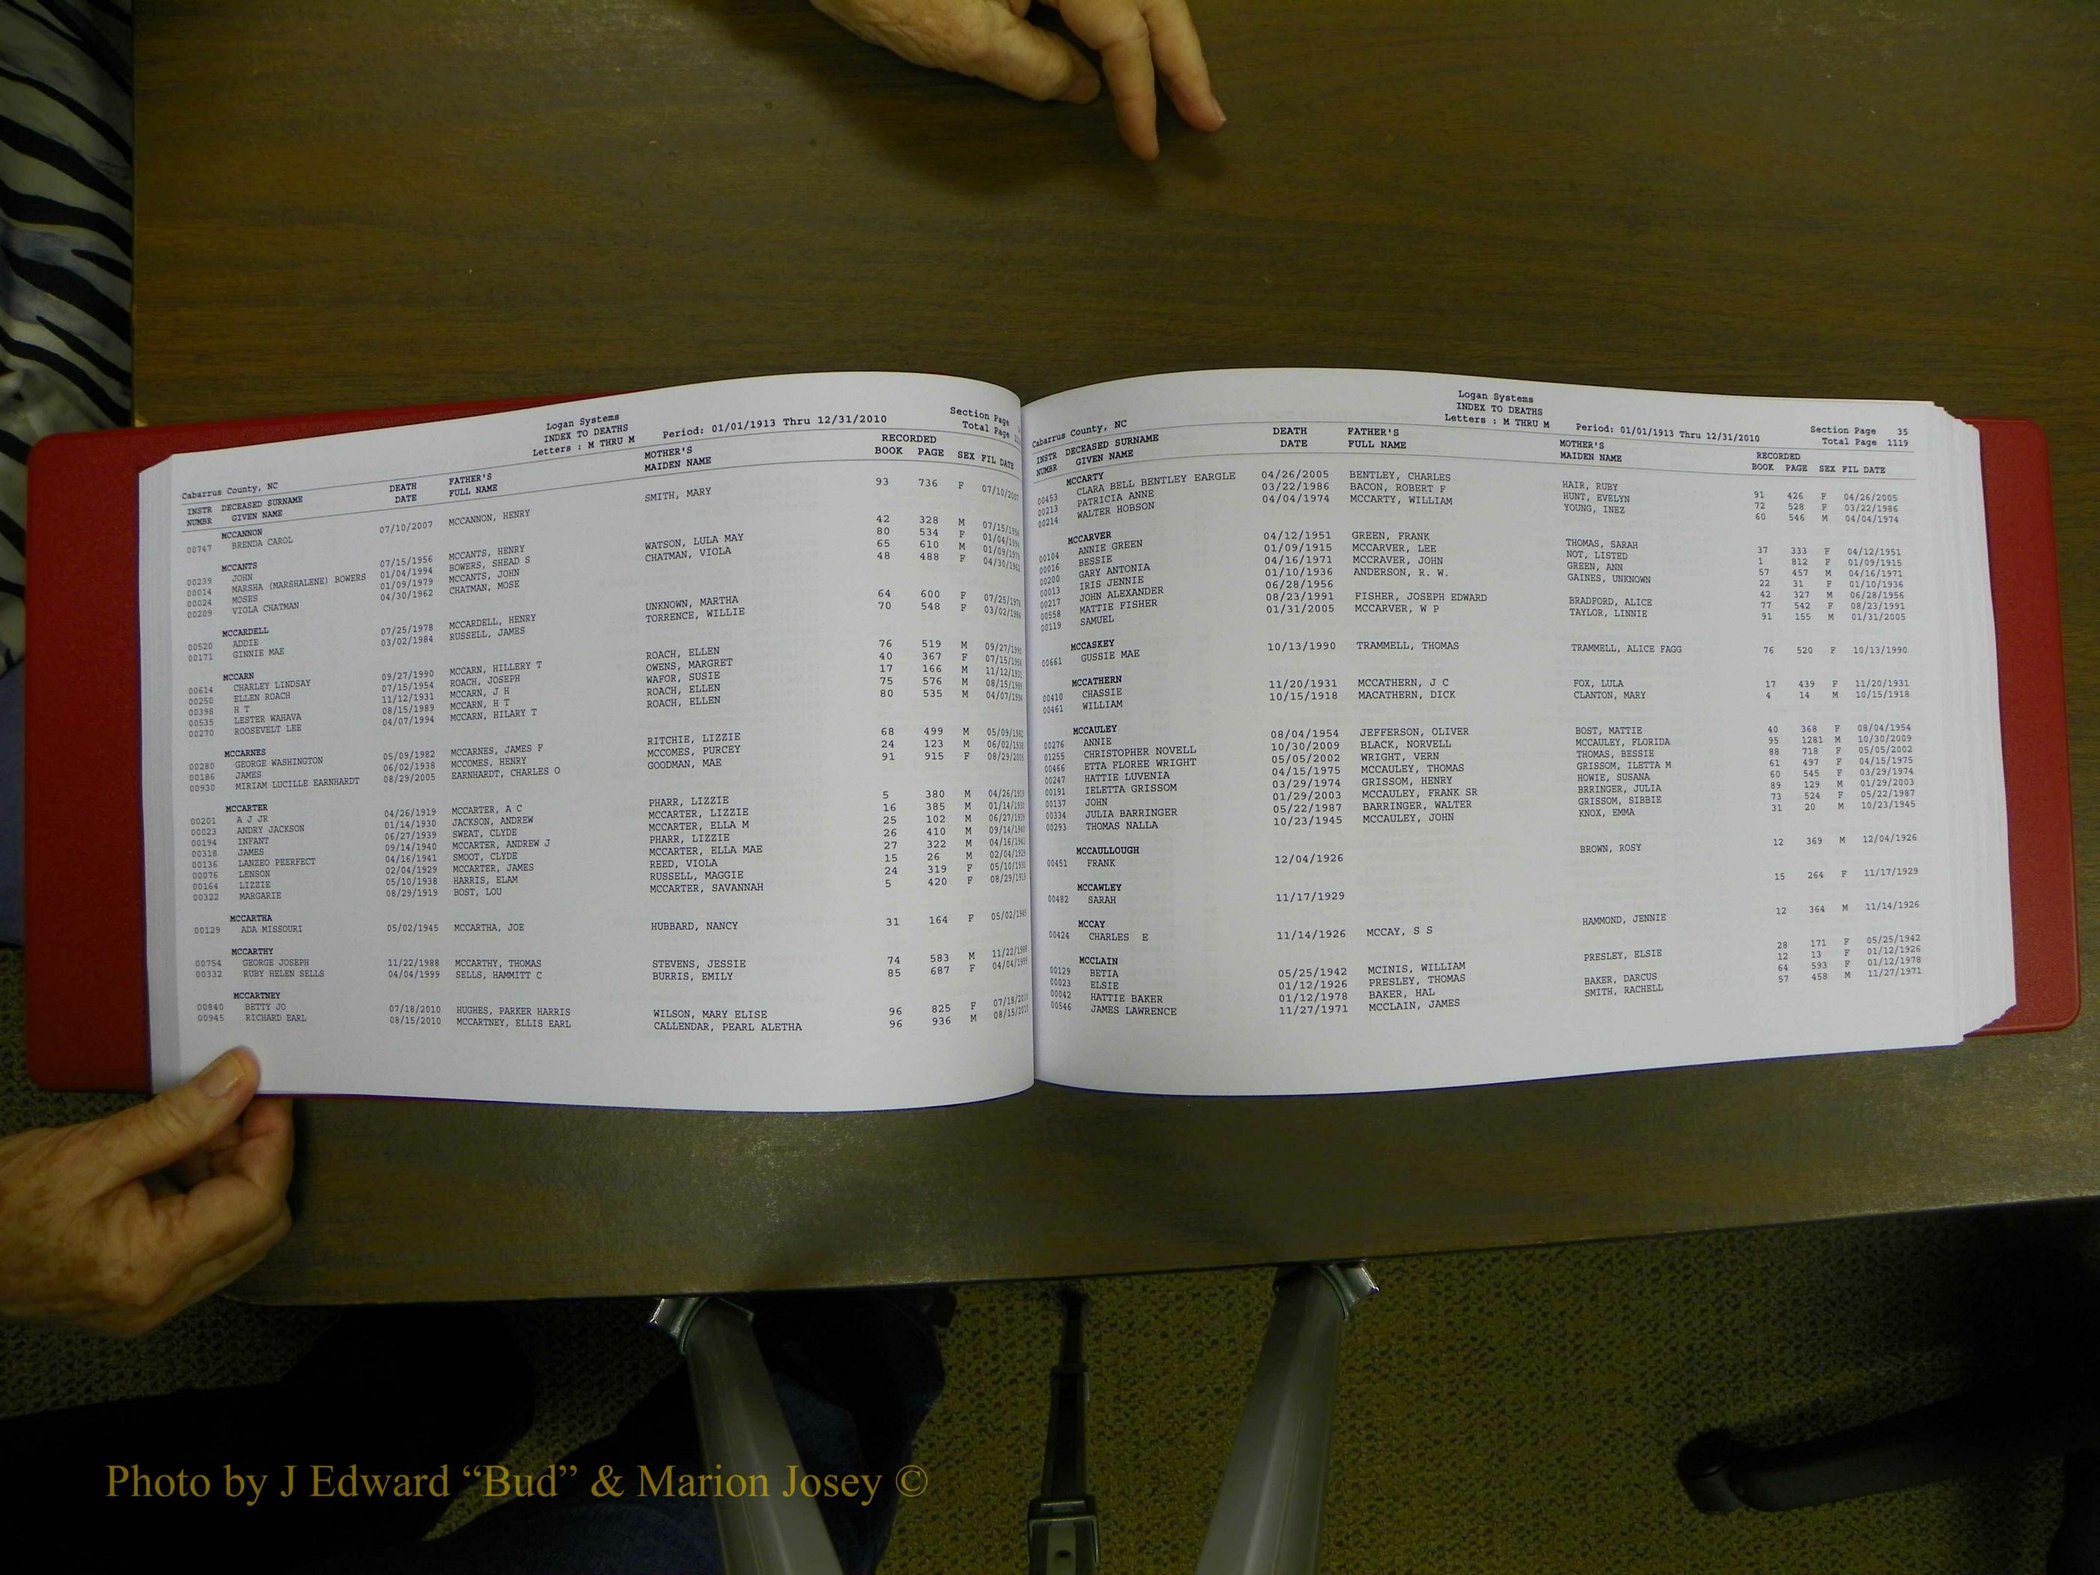 Logan Systems
INDEX TO DEATHS
Letters : M THRU M
Period: 01/01/1913 Thru 12/31/2010
Section Page
Total Page
Cabarrus County, NC
INSTR DECEASED SURNAME DEATH FATHER'S MOTHER'S RECORDED
NUMBR GIVEN NAME DATE FULL NAME MAIDEN NAME BOOK PAGE SEX FIL DATE
MCCANNON
00747 BRENDA CAROL 07/10/2007 MCCANNON, HENRY SMITH, MARY 93 736 F 07/10/2007
MCCANTS
00239 JOHN 07/15/1956 MCCANTS, HENRY 42 328 M 07/15/1956
00014 MARSHA (MARSHALENE) BOWERS 01/04/1994 BOWERS, SHEAD S WATSON, LULA MAY 80 534 F 01/04/1994
00024 MOSES 01/09/1979 MCCANTS, JOHN CHATMAN, VIOLA 65 610 M 01/09/1979
00209 VIOLA CHATMAN 04/30/1962 CHATMAN, MOSE 48 488 F 04/30/1962
MCCARDELL
00520 ADDIE 07/25/1978 MCCARDELL, HENRY UNKNOWN, MARTHA 64 600 F 07/25/1978
00171 GINNIE MAE 03/02/1984 RUSSELL, JAMES TORRENCE, WILLIE 70 548 F 03/02/1984
MCCARN
00614 CHARLEY LINDSAY 09/27/1990 MCCARN, HILLERY T ROACH, ELLEN 76 519 M 09/27/1990
00250 ELLEN ROACH 07/15/1954 ROACH, JOSEPH OWENS, MARGRET 40 367 F 07/15/1954
00398 H T 11/12/1931 MCCARN, J H WAFOR, SUSIE 17 166 M 11/12/1931
00535 LESTER WAHAVA 08/15/1989 MCCARN, H T ROACH, ELLEN 75 576 M 08/15/1989
00270 ROOSEVELT LEE 04/07/1994 MCCARN, HILARY T ROACH, ELLEN 80 535 M 04/07/1994
MCCARNES
00280 GEORGE WASHINGTON 05/09/1982 MCCARNES, JAMES F RITCHIE, LIZZIE 68 499 M 05/09/1982
00186 JAMES 06/02/1938 MCCOMES, HENRY MCCOMES, PURCEY 24 123 M 06/02/1938
00930 MIRIAM LUCILLE EARNHARDT 08/29/2005 EARNHARDT, CHARLES O GOODMAN, MAE 91 915 F 08/29/2005
MCCARTER
00201 A J JR 04/26/1919 MCCARTER, A C PHARR, LIZZIE 5 380 M 04/26/1919
00023 ANDRY JACKSON 01/14/1930 JACKSON, ANDREW MCCARTER, LIZZIE 16 385 M 01/14/1930
00194 INFANT 06/27/1939 SWEAT, CLYDE MCCARTER, ELLA M 25 102 M 06/27/1939
00318 JAMES 09/14/1940 MCCARTER, ANDREW J PHARR, LIZZIE 26 410 M 09/14/1940
00136 LANZEO PEERFECT 04/16/1941 SMOOT, CLYDE MCCARTER, ELLA MAE 27 322 M 04/16/1941
00076 LENSON 02/04/1929 MCCARTER, JAMES REED, VIOLA 15 26 M 02/04/1929
00164 LIZZIE 05/10/1938 HARRIS, ELAM RUSSELL, MAGGIE 24 319 F 05/10/1938
00322 MARGARIE 08/29/1919 BOST, LOU MCCARTER, SAVANNAH 5 420 F 08/29/1919
MCCARTHA
00129 ADA MISSOURI 05/02/1945 MCCARTHA, JOE HUBBARD, NANCY 31 164 F 05/02/1945
MCCARTHY
00754 GEORGE JOSEPH 11/22/1988 MCCARTHY, THOMAS STEVENS, JESSIE 74 583 M 11/22/1988
00332 RUBY HELEN SELLS 04/04/1999 SELLS, HAMMITT C BURRIS, EMILY 85 687 F 04/04/1999
MCCARTNEY
00840 BETTY JO 07/18/2010 HUGHES, PARKER HARRIS WILSON, MARY ELISE 96 825 F 07/18/2010
00945 RICHARD EARL 08/15/2010 MCCARTNEY, ELLIS EARL CALLENDAR, PEARL ALETHA 96 936 M 08/15/2010
Logan Systems
INDEX TO DEATHS
Letters : M THRU M
Period: 01/01/1913 Thru 12/31/2010
Section Page 35
Total Page 1119
Cabarrus County, NC
INSTR DECEASED SURNAME DEATH FATHER'S MOTHER'S RECORDED
NUMBR GIVEN NAME DATE FULL NAME MAIDEN NAME BOOK PAGE SEX FIL DATE
MCCARTY
00453 CLARA BELL BENTLEY EARGLE 04/26/2005 BENTLEY, CHARLES HAIR, RUBY 91 426 F 04/26/2005
00213 PATRICIA ANNE 03/22/1986 BACON, ROBERT F HUNT, EVELYN 72 528 F 03/22/1986
00214 WALTER HOBSON 04/04/1974 MCCARTY, WILLIAM YOUNG, INEZ 60 546 M 04/04/1974
MCCARVER
00104 ANNIE GREEN 04/12/1951 GREEN, FRANK THOMAS, SARAH 37 333 F 04/12/1951
00016 BESSIE 01/09/1915 MCCARVER, LEE NOT, LISTED 1 812 F 01/09/1915
00200 GARY ANTONIA 04/16/1971 MCCRAVER, JOHN GREEN, ANN 57 457 M 04/16/1971
00013 IRIS JENNIE 01/10/1936 ANDERSON, R. W. GAINES, UNKNOWN 22 31 F 01/10/1936
00217 JOHN ALEXANDER 06/28/1956 42 327 M 06/28/1956
00558 MATTIE FISHER 08/23/1991 FISHER, JOSEPH EDWARD BRADFORD, ALICE 77 542 F 08/23/1991
00119 SAMUEL 01/31/2005 MCCARVER, W P TAYLOR, LINNIE 91 155 M 01/31/2005
MCCASKEY
00661 GUSSIE MAE 10/13/1990 TRAMMELL, THOMAS TRAMMELL, ALICE FAGG 76 520 F 10/13/1990
MCCATHERN
00410 CHASSIE 11/20/1931 MCCATHERN, J C FOX, LULA 17 439 F 11/20/1931
00461 WILLIAM 10/15/1918 MACATHERN, DICK CLANTON, MARY 4 14 M 10/15/1918
MCCAULEY
00276 ANNIE 08/04/1954 JEFFERSON, OLIVER BOST, MATTIE 40 368 F 08/04/1954
01255 CHRISTOPHER NOVELL 10/30/2009 BLACK, NORVELL MCCAULEY, FLORIDA 95 1281 M 10/30/2009
00466 ETTA FLOREE WRIGHT 05/05/2002 WRIGHT, VERN THOMAS, BESSIE 88 718 F 05/05/2002
00247 HATTIE LUVENIA 04/15/1975 MCCAULEY, THOMAS GRISSOM, ILETTA M 61 497 F 04/15/1975
00191 IELETTA GRISSOM 03/29/1974 GRISSOM, HENRY HOWIE, SUSANA 60 545 F 03/29/1974
00137 JOHN 01/29/2003 MCCAULEY, FRANK SR BRRINGER, JULIA 89 129 M 01/29/2003
00334 JULIA BARRINGER 05/22/1987 BARRINGER, WALTER GRISSOM, SIBBIE 73 524 F 05/22/1987
00293 THOMAS NALLA 10/23/1945 MCCAULEY, JOHN KNOX, EMMA 31 20 M 10/23/1945
MCCAULLOUGH
00451 FRANK 12/04/1926 BROWN, ROSY 12 369 M 12/04/1926
MCCAWLEY
00482 SARAH 11/17/1929 15 264 F 11/17/1929
MCCAY
00424 CHARLES E 11/14/1926 MCCAY, S S HAMMOND, JENNIE 12 364 M 11/14/1926
MCCLAIN
00129 BETIA 05/25/1942 MCINIS, WILLIAM PRESLEY, ELSIE 28 171 F 05/25/1942
00023 ELSIE 01/12/1926 PRESLEY, THOMAS 12 13 F 01/12/1926
00042 HATTIE BAKER 01/12/1978 BAKER, HAL BAKER, DARCUS 64 593 F 01/12/1978
00546 JAMES LAWRENCE 11/27/1971 MCCLAIN, JAMES SMITH, RACHELL 57 458 M 11/27/1971
Photo by J Edward “Bud” & Marion Josey ©